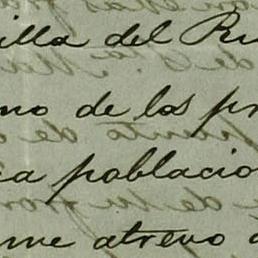 illa del Ru
no de los pr
ca poblacio
me atrevo a